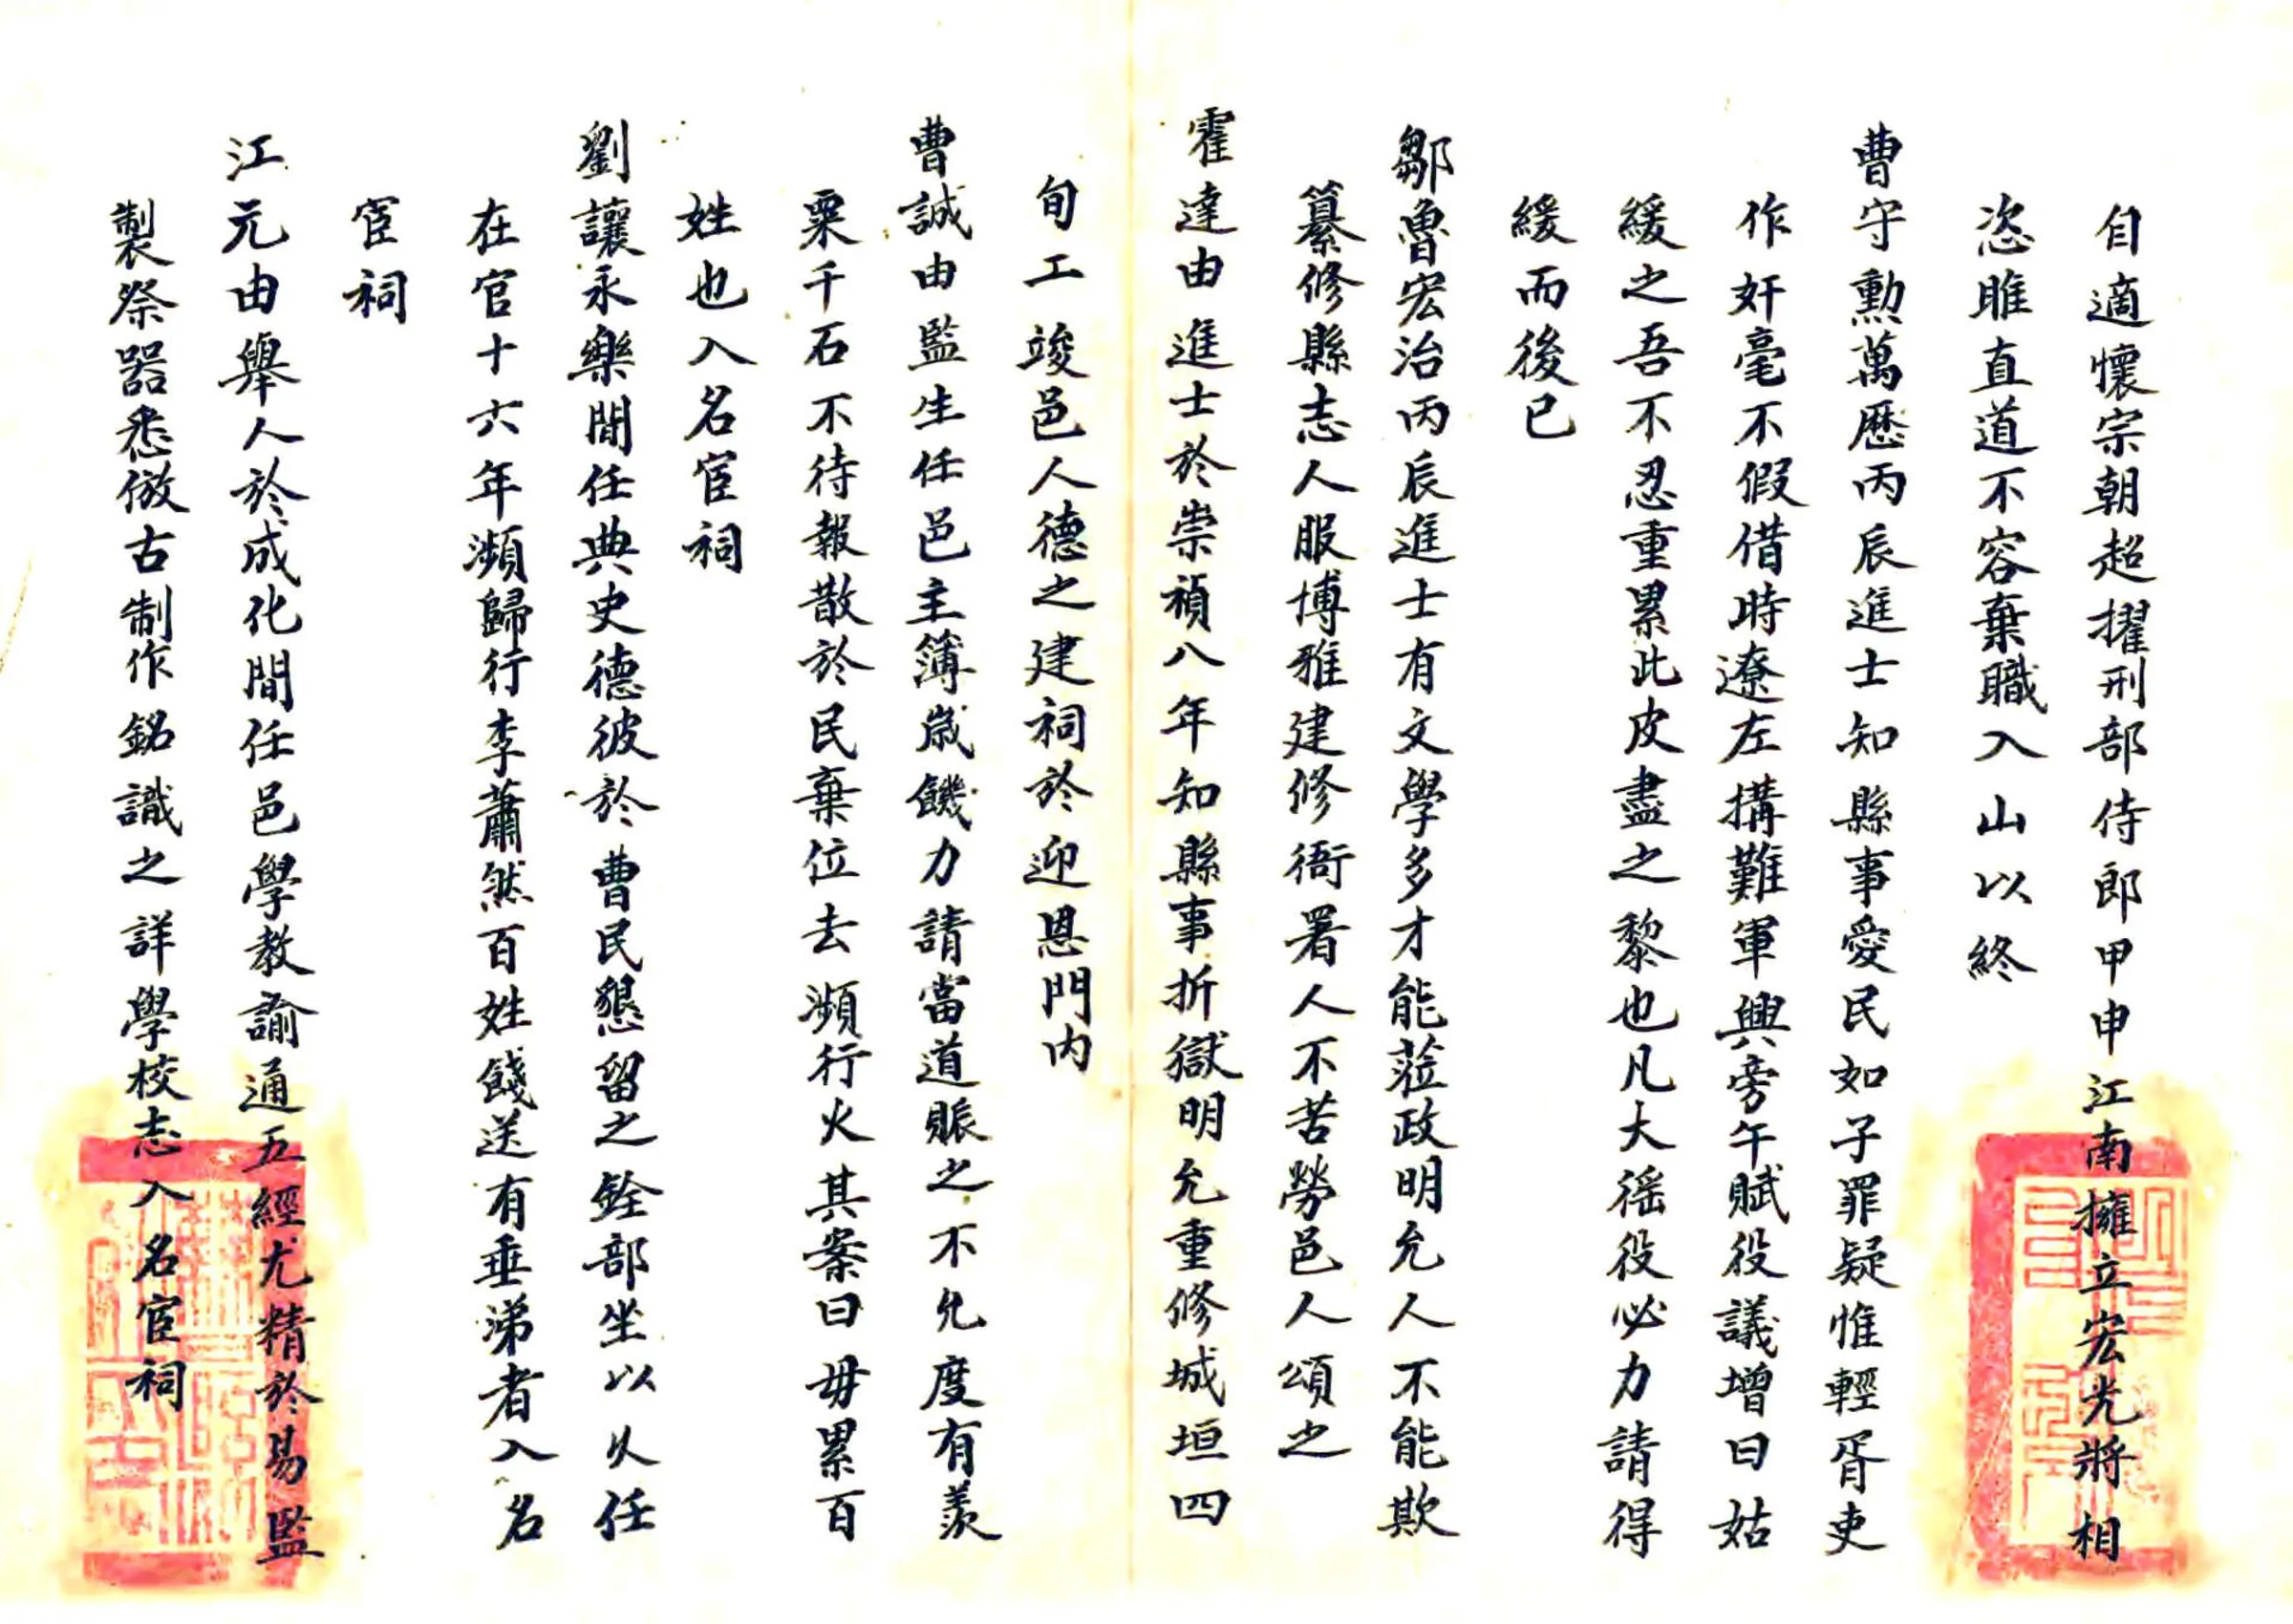 自適懷宗朝超擢刑部侍郎甲申江南擁立宏光將相
恣睢直道不容棄職入山以終
曹守勳萬歷丙辰進士知縣事愛民如子罪疑惟輕胥吏
作奸毫不假借時遼左搆難軍興旁午賦役議增曰姑
緩之吾不忍重累此皮盡之黎也凡大徭役必力請得
緩而後已
鄒魯宏治丙辰進士有文學多才能蒞政明允人不能欺
纂修縣志人服博雅建修衙署人不苦勞邑人頌之
霍達由進士於崇禎八年知縣事折獄明允重修城垣四
旬工竣邑人德之建祠於迎恩門内
曹誠由監生任邑主簿歲饑力請當道賑之不允度有羨
粟千石不待報散於民棄位去瀕行火其案曰毋累百
姓也入名宦祠
劉讓永樂間任典史德彼於曹民懇留之銓部坐以久任
在官十六年瀕歸行李蕭然百姓餞送有垂涕者入名
宦祠
江元由舉人於成化間任邑學教諭通五經尤精於易監
製祭器悉倣古制作銘識之詳學校志入名宦祠